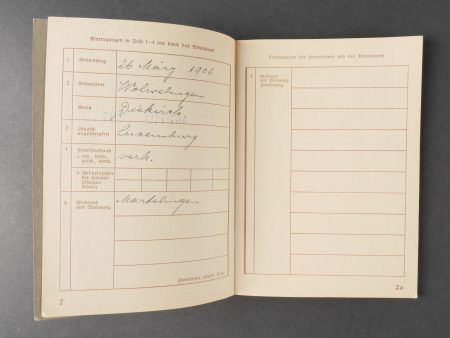 Eintragungen in Feld 1–4 nur durch das Arbeitsamt
1 Geburtstag 26 März 1906
2 Geburtsort Wolwelingen
Kreis Diekirch
3 Staats-
angehörigkeit Luxemburg
4 Familienstand
led., verh.,
gesch., verw. verh.
Geburtsjahre
der minder-
jährigen
Kinder
5 Wohnort
und Wohnung Martelingen
Fortsetzung nächste Seite
2
Eintragungen der
und des Arbeitsamts
Wohnort
und Wohnung
2a